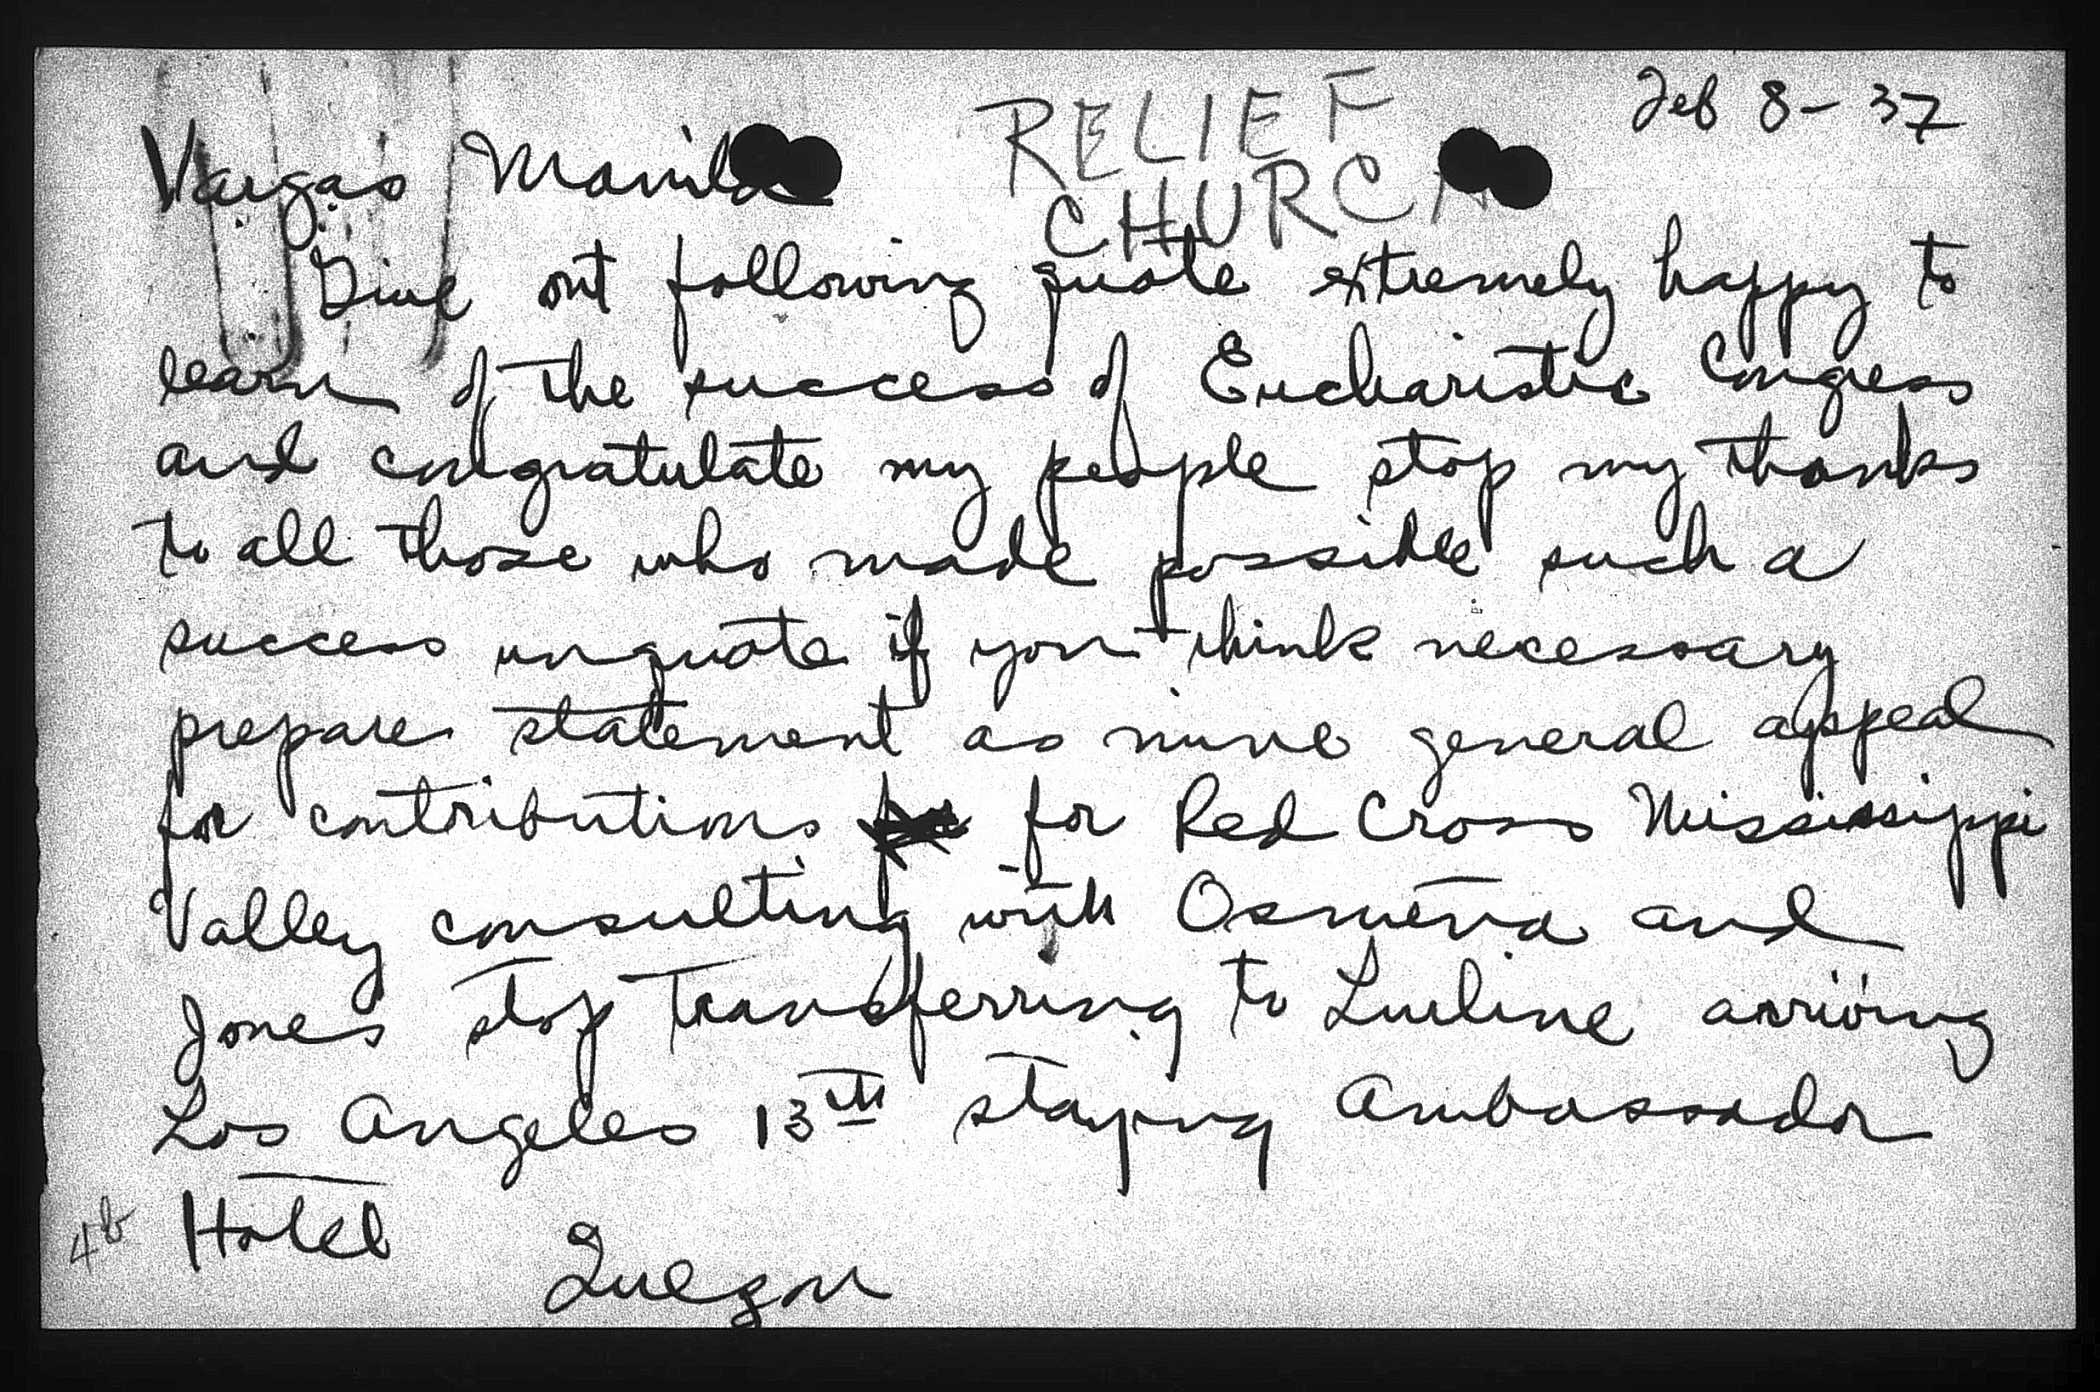 Feb 8 - 37
RELIEF
CHURCH
Vargas Manila
Give out following quote extremely happy to
learn of the success of Eucharistic Congress
and congratulate my people stop my thanks
to all those who made possible such a
success unquote if you think necessary
prepare statement as mine general appeal
for contributions for Red Cross Mississippi
Valley consulting with Osmeña and
Jones stop transferring to Lurline arriving
Los Angeles 13th staying Ambassador
Hotel
4b
Quezon